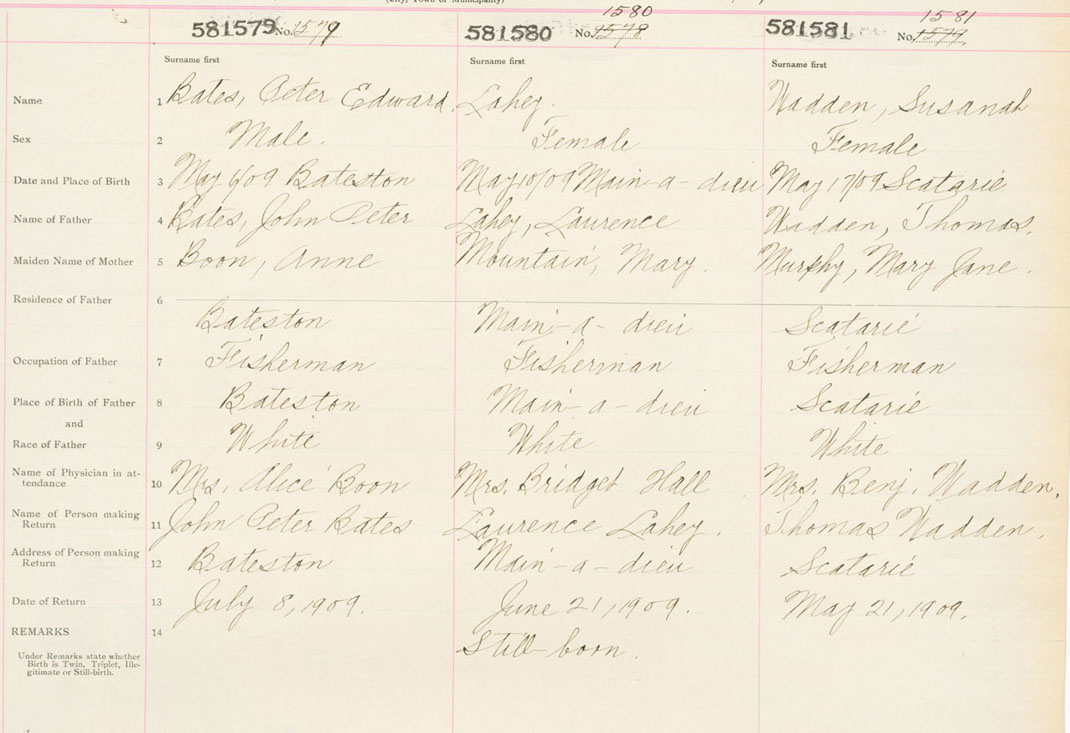 (City, Town or Municipality)
1580 1581
581579 No. 1579 581580 No. 1578 581581 No. 1579
Surname first Surname first Surname first
Name 1 Bates, Peter Edward. Lahey. Wadden, Susanah
Sex 2 Male. Female Female
Date and Place of Birth 3 May 6/09 Bateston May 10/09 Main-a-dieu May 17/09 Scatarie
Name of Father 4 Bates, John Peter Lahey, Laurence Wadden, Thomas.
Maiden Name of Mother 5 Boon, Anne Mountain, Mary. Murphy, Mary Jane.
Residence of Father 6
Bateston Main-a-dieu Scatarie
Occupation of Father 7 Fisherman Fisherman Fisherman
Place of Birth of Father 8 Bateston Main-a-dieu Scatarie
and
Race of Father 9 White White White
Name of Physician in at-
tendance 10 Mrs. Alice Boon Mrs. Bridget Hall Mrs. Benj. Wadden.
Name of Person making
Return 11 John Peter Bates Laurence Lahey. Thomas Wadden.
Address of Person making
Return 12 Bateston Main-a-dieu Scatarie
Date of Return 13 July 8, 1909. June 21, 1909. May 21, 1909.
REMARKS 14 Still-born.
Under Remarks state whether
Birth is Twin, Triplet, Ille-
gitimate or Still-birth.